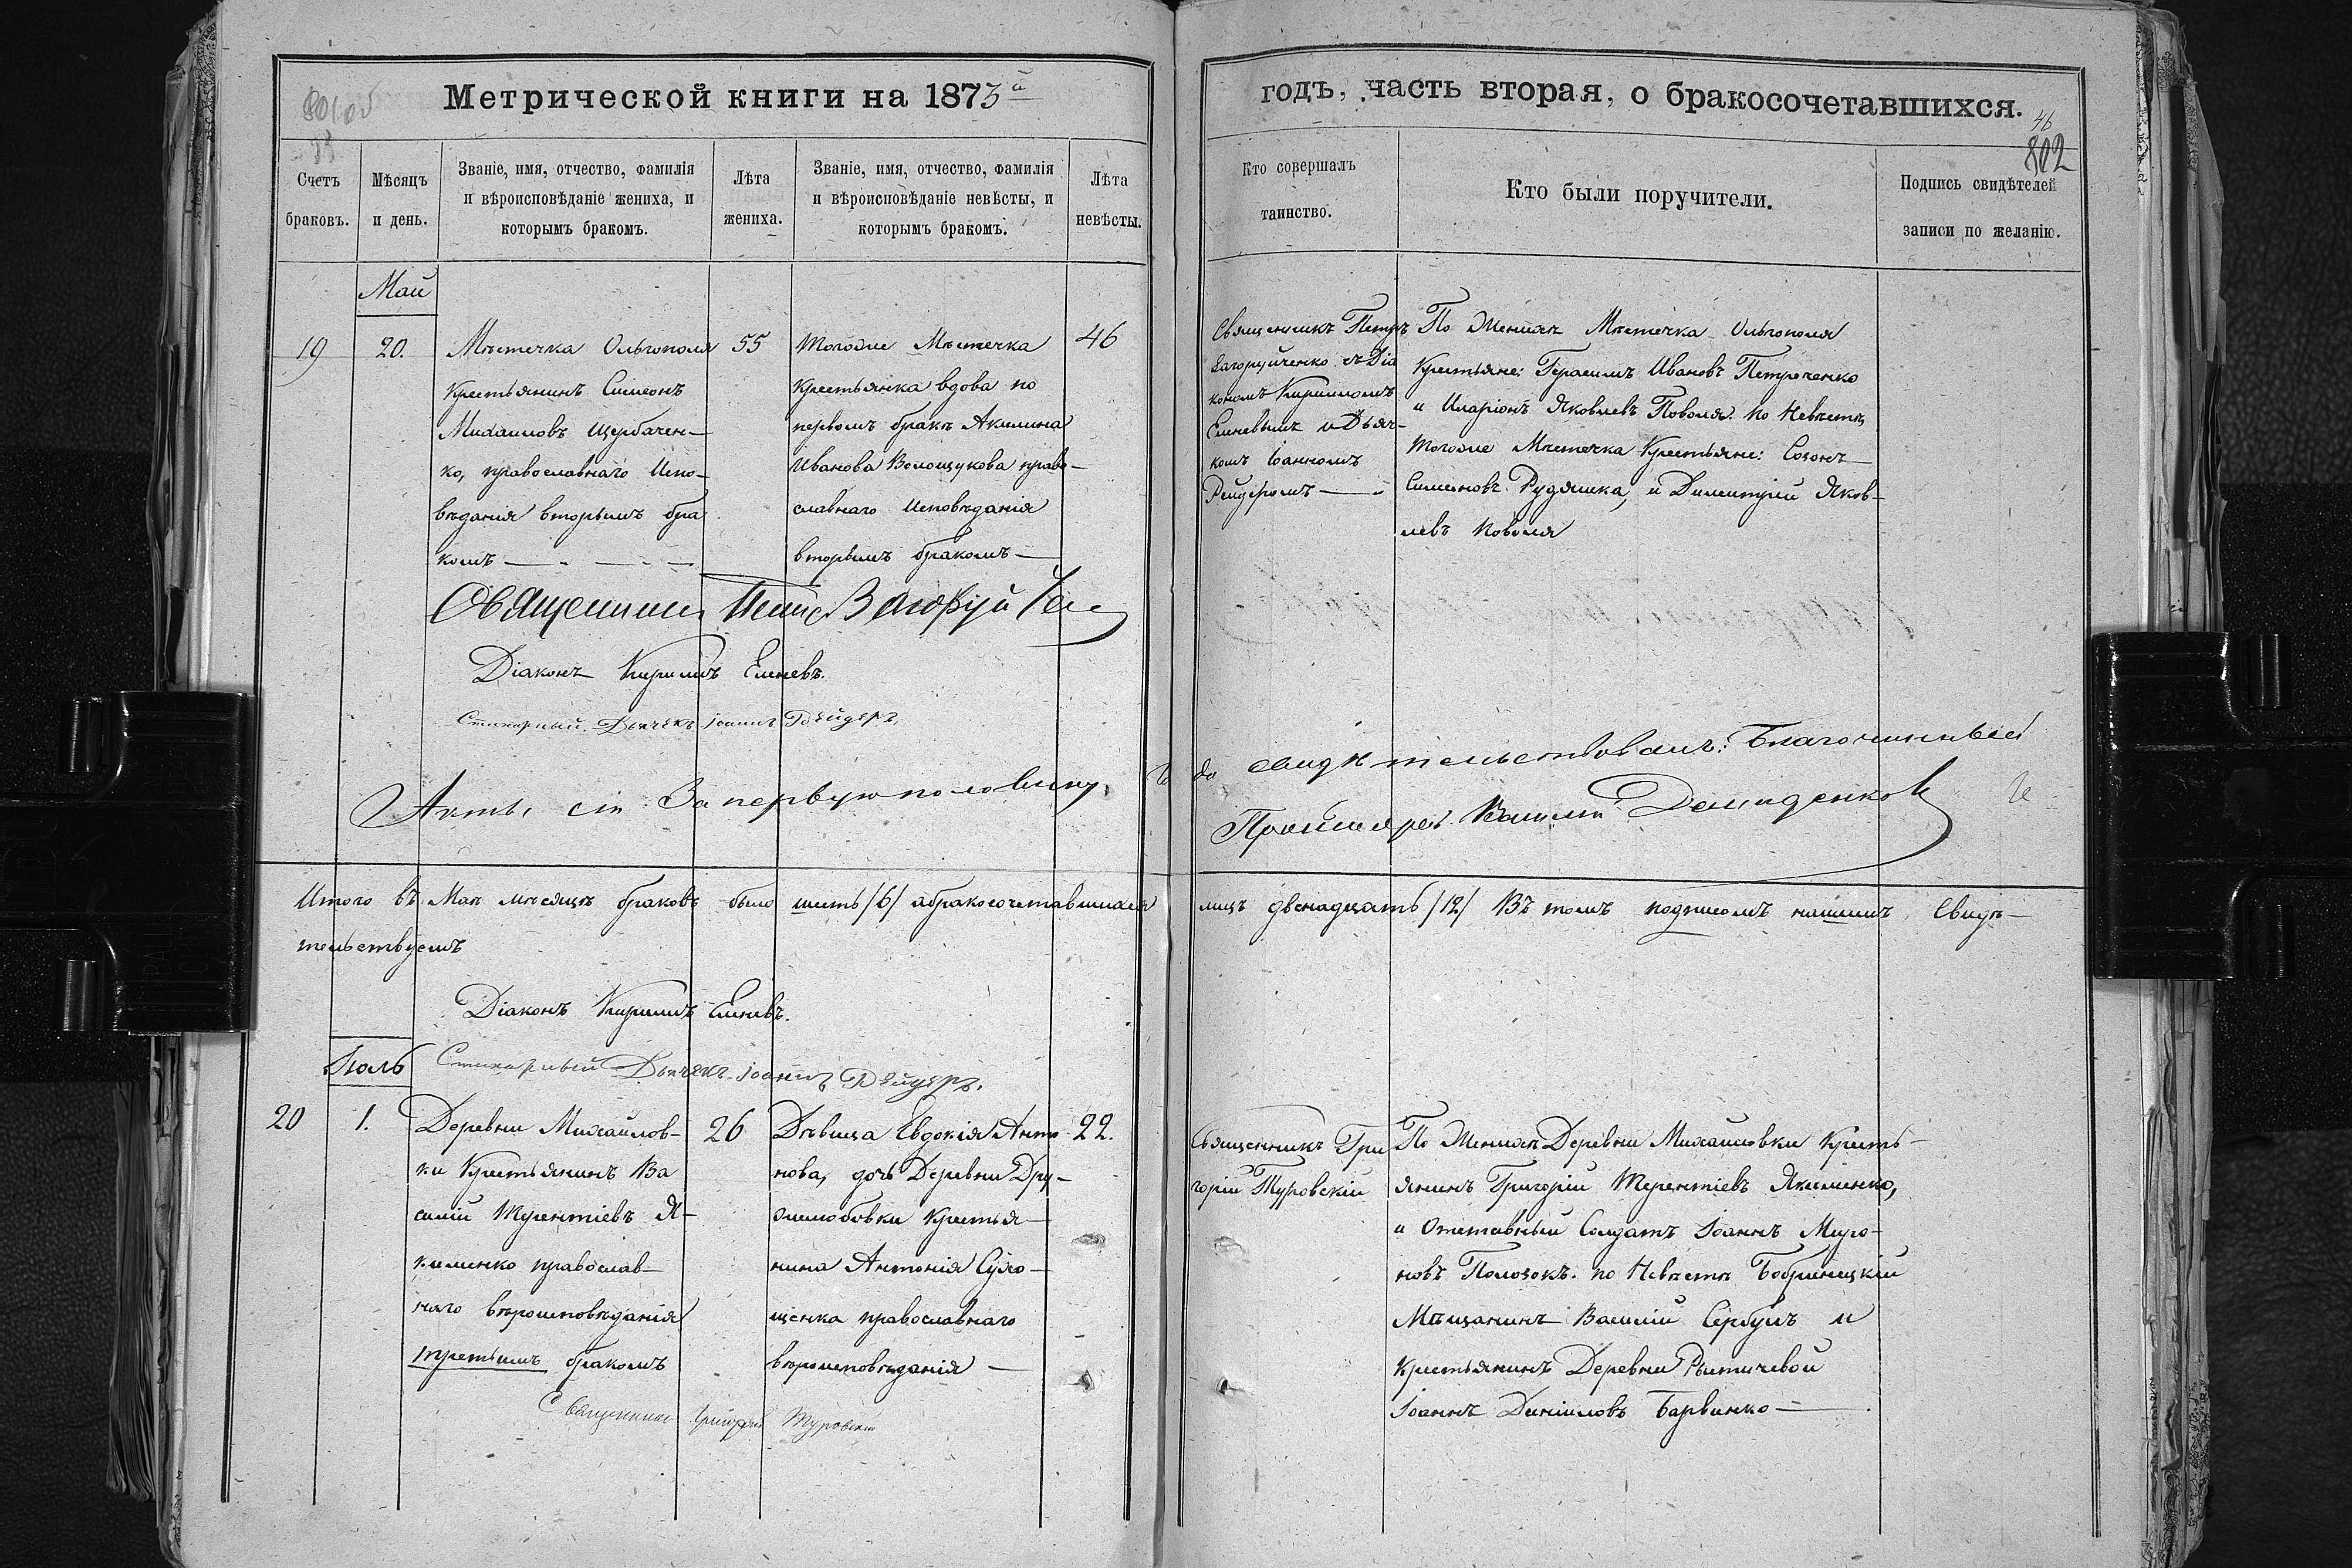 Метрической книги на 1873й
годъ, часть вторая, о бракосочетавшихся.
46
802
Счетъ
браковъ.
Мѣсяцъ
и день.
Званіе, имя, отчество, фамилія
и вѣроисповѣданіе жениха, и
которымъ бракомъ.
Лѣта
жениха.
Званіе, имя, отчество, фамилія
и вѣроисповѣданіе невѣсты, и
которымъ бракомъ.
Лѣта
невѣсты.
Кто совершалъ
таинство.
Кто были поручители.
Подпись свидѣтелей
записи по желанію.
Май
19
20.
Мѣстечка Ольгополя
Крестьянинъ Симеонъ
Михаиловъ Щербачен-
ко, православнаго Испо-
вѣданія вторымъ бра
комъ
55
Тогоже Мѣстечка
Крестьянка вдова по
первомъ бракѣ Акилина
Иванова Волощукова право-
славнаго Исповѣданія
вторымъ бракомъ
46
Священникъ Петръ
Загоруйченко съ Діа
кономъ Кирилломъ
Еленевымъ и Дьяч-
комъ Іоанномъ
Рейдеромъ
По Женихѣ Мѣстечка Ольгополя
Крестьяне: Герасимъ Ивановъ Петреченко
и Иларіонъ Яковлевъ Поволя. по Невѣстѣ
Тогоже Мѣстечка Крестьяне: Созонъ
Симеоновъ Рудяшка, и Димитрій Яков-
левъ Поволя
Священникъ Петръ
Діаконъ Кириллъ Еленевъ.
Стихарный Дьячекъ Іоаннъ Рейдеръ
Акты сіи За первую половину
года свидѣтельствовалъ: Благочинный
Протоіерей Василій Демиденковъ
Итого въ Маѣ мѣсяцѣ браковъ было шесть /6/ а бракосочетавшихся
лицъ двенадцать /12/ Въ томъ подписомъ нашимъ Свидѣ-
тельствуемъ
Діаконъ Кириллъ Еленевъ.
Стихарный Дьячекъ Іоаннъ Рейдеръ.
Іюль
20
1.
Деревни Михайлов-
ки Крестьянинъ Ва
силій Терентіевъ Я-
кименко православ-
наго вѣроисповѣданія
третьимъ бракомъ
26
Дѣвица Евдокія Анто
нова, дочь Деревни Дру-
желюбовки Крестья-
нина Антонія Сухо-
щенка православнаго
вѣроисповѣданія
22.
Священникъ Гри
горій Туровскій
По Женихѣ Деревни Михайловки Кресть-
янинъ Григорій Терентіевъ Якименко,
и Отставный Солдатъ Іоаннъ Миро-
новъ Полозокъ. по Невѣстѣ Бобринецкій
Мѣщанинъ Василій Сербулъ и
Крестьянинъ Деревни
Іоаннъ Даніиловъ Барвинко
Священникъ Григорій Туровскій